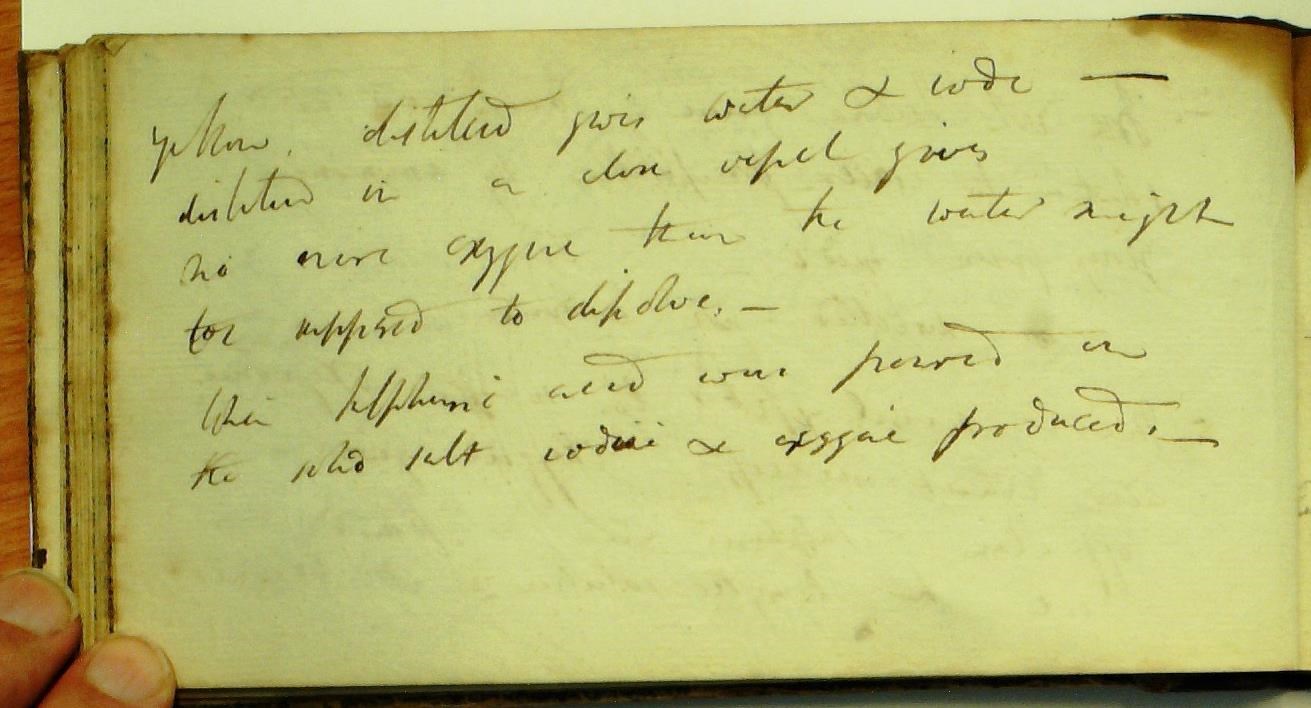 yellow. distilled gives water & iode —
distilled in a close vessel gives
no more oxygene than the water might
be supposed to dissolve. —
When sulphuric acid was poured on
the solid salt iodine & oxygene produced. —